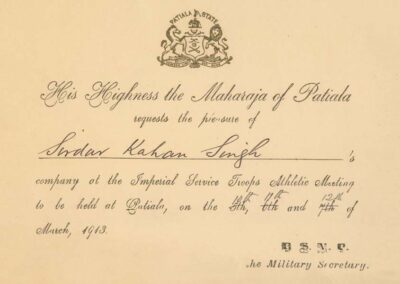 PATIALA STATE
His Highness the Maharaja of Patiala
requests the pleasure of
Sirdar Kahan Singh 's
company at the Imperial Service Troops Athletic Meeting
to be held at Patiala, on the and of
March, 1913.
R.S.V.P.
The Military Secretary.